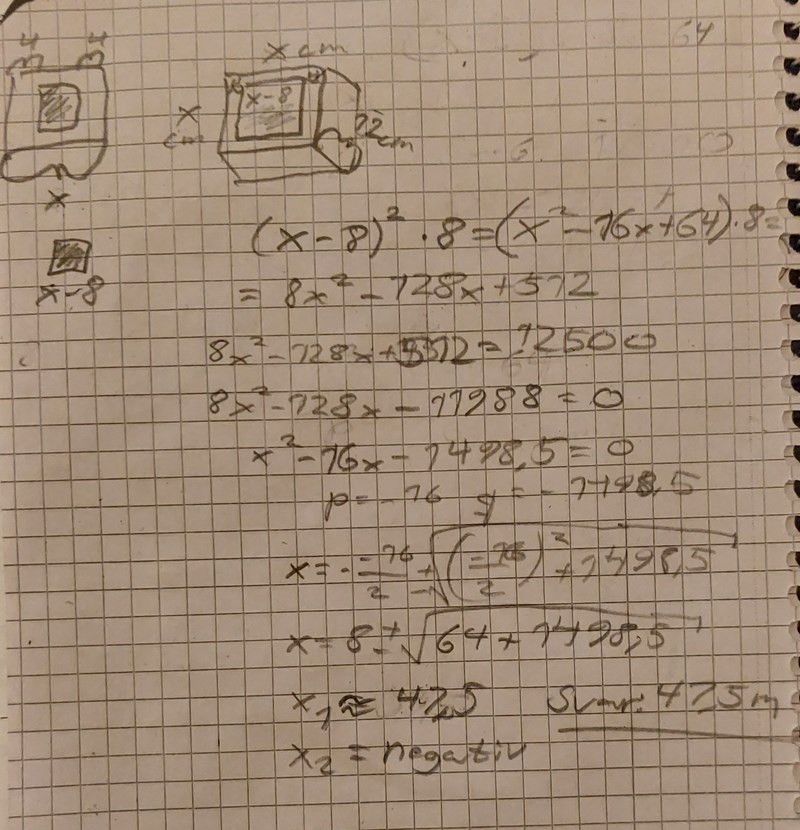 64
4 4
x cm
x-8
x
cm
12
cm
x
x-8
(x-8)² · 8 = (x²-16x+64)·8=
= 8x² - 128x + 512
8x²-128x+512 = 12500
8x²-128x - 11988 = 0
x²-16x-1498,5 = 0
p=-16 q=-1498,5
x = - -16/2 ± √((-16/2)² + 1498,5)
x = 8 ± √(64+1498,5)
x₁ ≈ 47,5 Svar: 47,5 m
x₂ = negativ